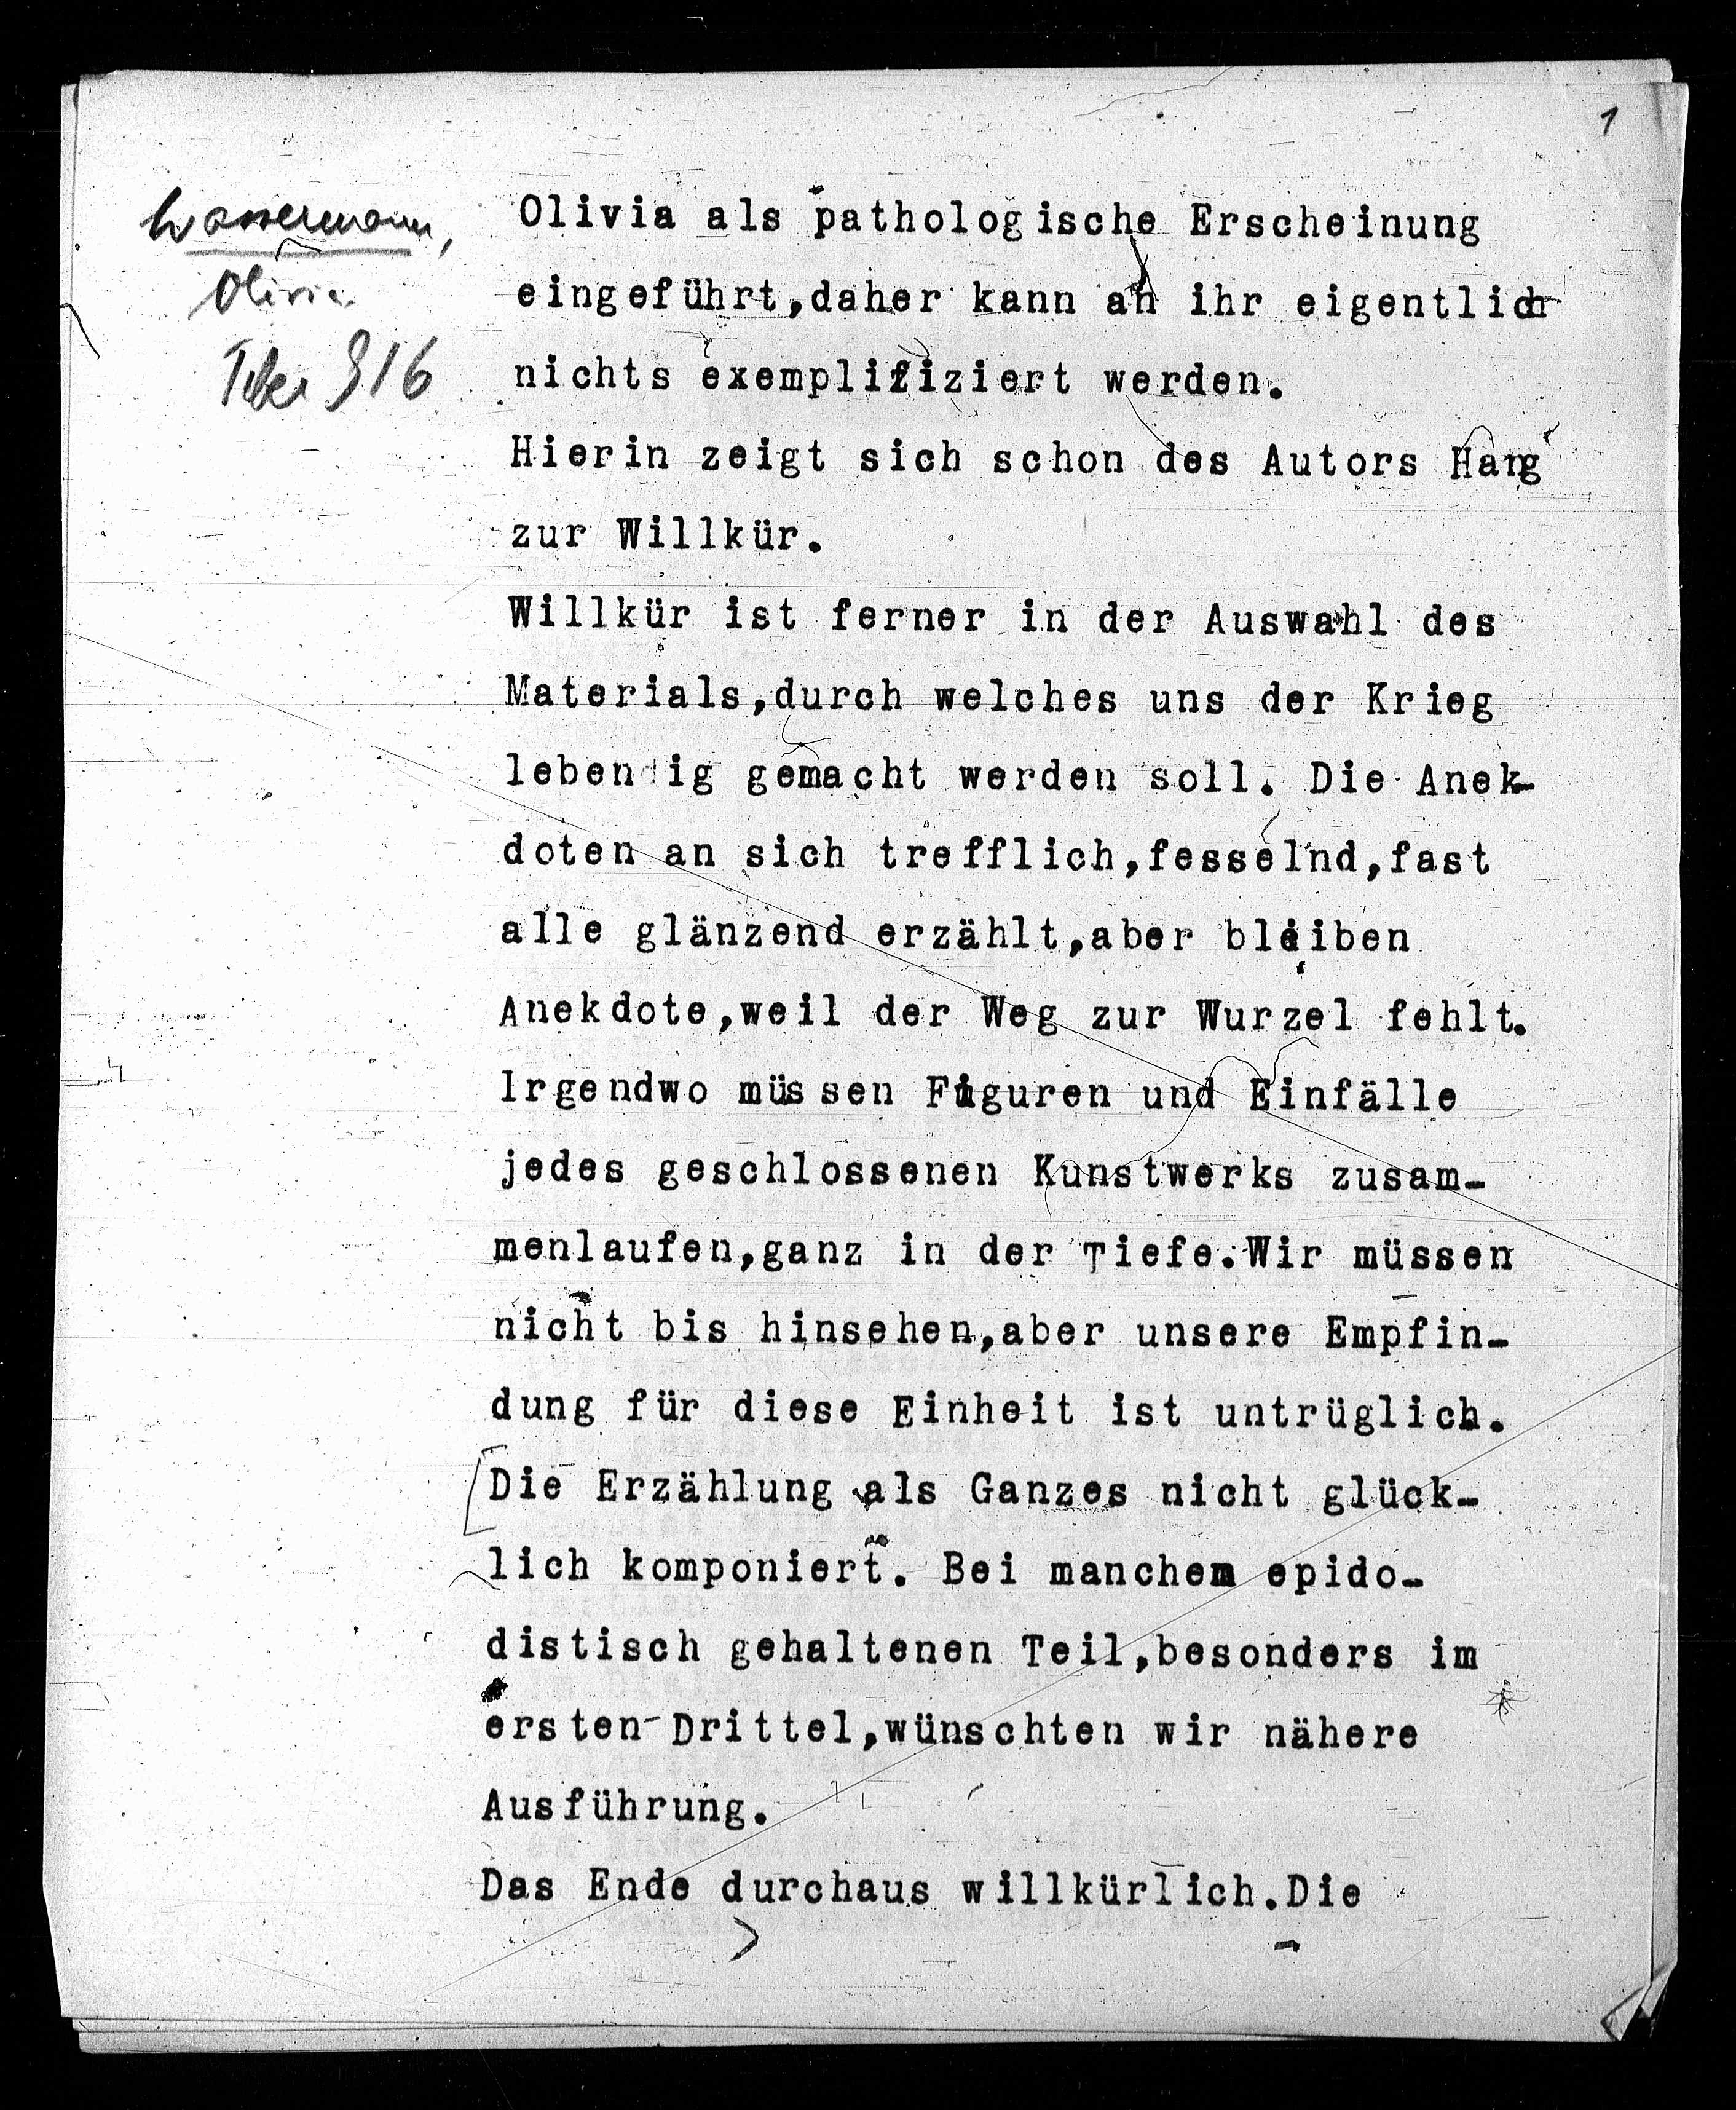 1
Wassermann,
Olivia
916
Olivia als pathologische Erscheinung
eingeführt,daher kann an ihr eigentlich
nichts exemplifiziert werden.
Hierin zeigt sich schon des Autors Hang
zur Willkür.
Willkür ist ferner in der Auswahl des
Materials,durch welches uns der Krieg
lebendig gemacht werden soll. Die Anek-
doten an sich trefflich,fesselnd,fast
alle glänzend erzählt,aber bleiben
Anekdote,weil der Weg zur Wurzel fehlt.
Irgendwo müssen Figuren und Einfälle
jedes geschlossenen Kunstwerks zusam-
menlaufen,ganz in der Tiefe.Wir müssen
nicht bis hinsehen,aber unsere Empfin-
dung für diese Einheit ist untrüglich.
[Die Erzählung als Ganzes nicht glück-
lich komponiert. Bei manchem epido-
distisch gehaltenen Teil,besonders im
ersten Drittel,wünschten wir nähere
Ausführung.
Das Ende durchaus willkürlich.Die